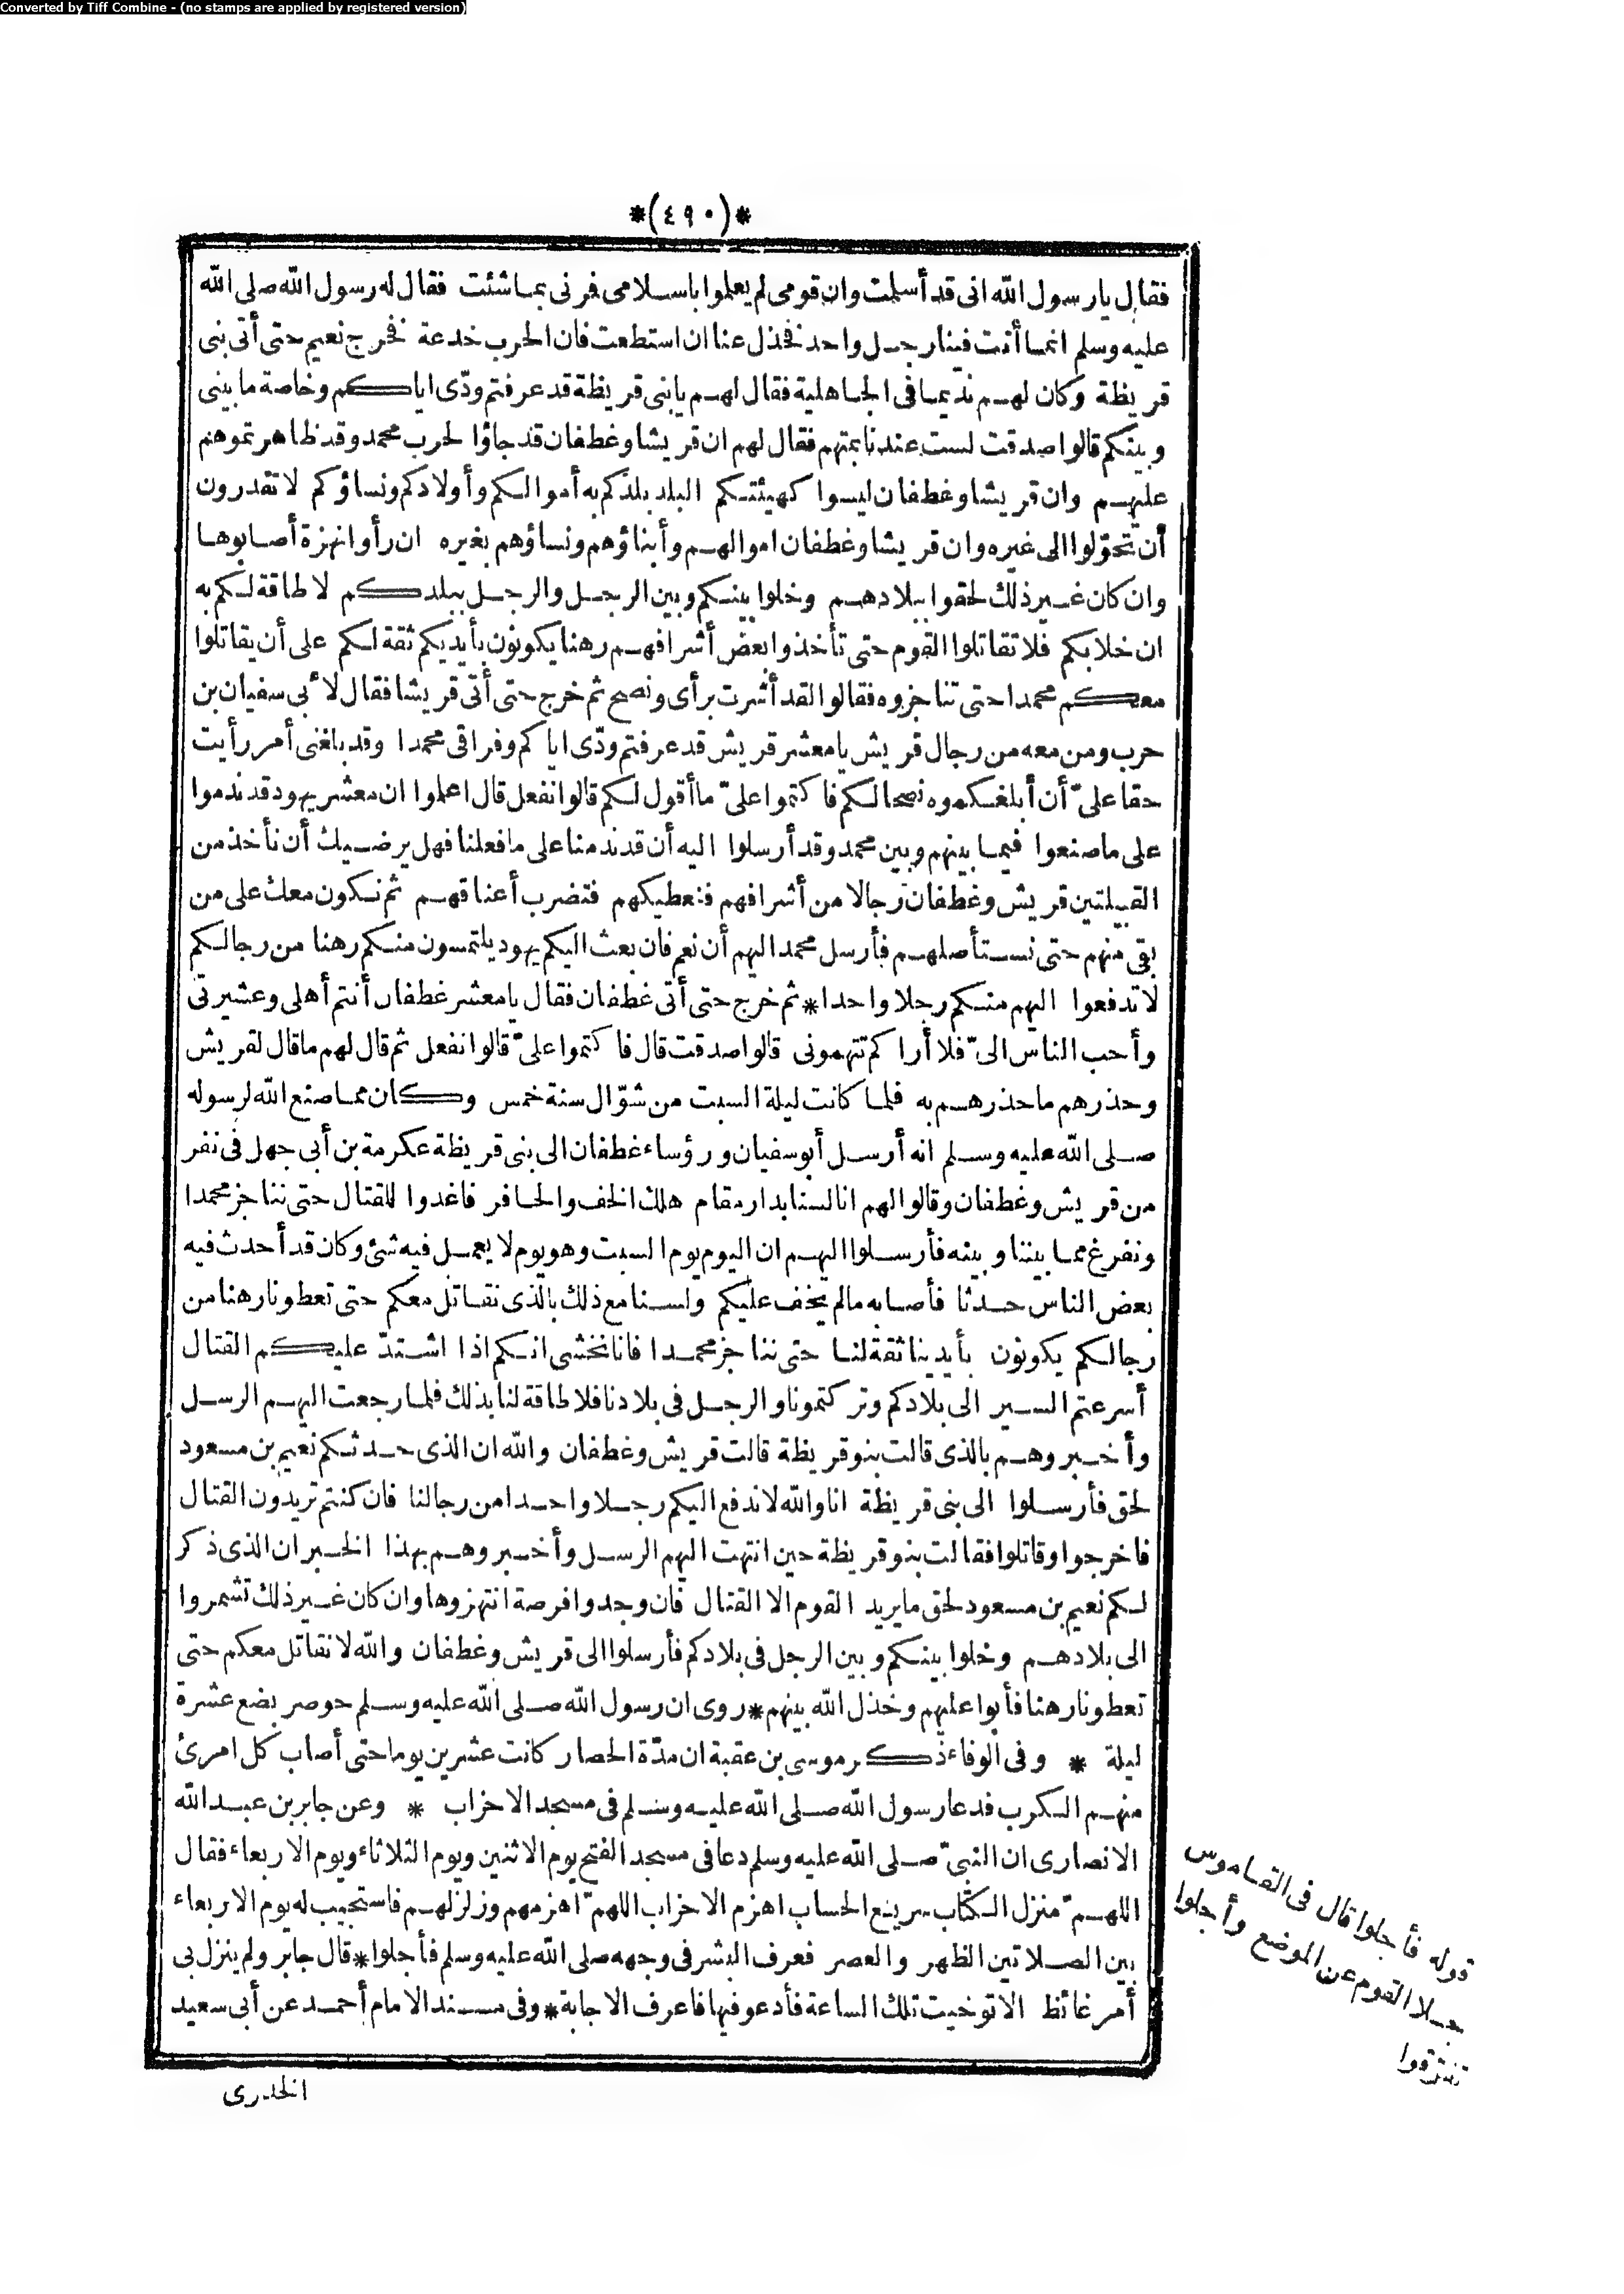 Converted by Tiff Combine - (no stamps are applied by registered version)
*(٤٩٠)*
فقال يارسول الله انى قد أسلمت وان قومى لم يعلموا باسلامى فمرنى بماشئت فقال له رسول الله صلى الله
عليه وسلم انما أنت فينا رجل واحد فخذل عنا ان استطعت فان الحرب خدعة فخرج نعيم حتى أتى بنى
قريظة وكان لهم نديما فى الجاهلية فقال لهم يابنى قريظة قد عرفتم ودّى اياكم وخاصة ما بينى
وبينكم قالوا صدقت لست عندنا بمتهم فقال لهم ان قريشا وغطفان قد جاؤا لحرب محمد وقد ظاهرتموهم
عليهم وان قريشا وغطفان ليسوا كهيئتكم البلد بلدكم به أموالكم وأولادكم ونساؤكم لا تقدرون
أن تحوّلوا الى غيره وان قريشا وغطفان اموالهم وأبناؤهم ونساؤهم بغيره ان رأوا نهزة أصابوها
وان كان غير ذلك لحقوا ببلادهم وخلوا بينكم وبين الرجل والرجل ببلدكم لا طاقة لكم به
ان خلا بكم فلا تقاتلوا القوم حتى تأخذوا بعض أشرافهم رهنا يكونون بأيديكم ثقة لكم على أن يقاتلوا
معكم محمدا حتى تناجزوه فقالوا لقد أشرت برأى ونصح ثم خرج حتى أتى قريشا فقال لأبى سفيان بن
حرب ومن معه من رجال قريش يا معشر قريش قد عرفتم ودّى اياكم وفراقى محمدا وقد بلغنى أمر رأيت
حقا علىّ أن أبلغكموه نصحا لكم فاكتموا علىّ ما أقول لكم قالوا نفعل قال اعلموا ان معشر يهود قد ندموا
على ما صنعوا فيما بينهم وبين محمد وقد أرسلوا اليه أن قد ندمنا على ما فعلنا فهل يرضيك أن نأخذ من
القبيلتين قريش وغطفان رجالا من أشرافهم فنعطيكهم فتضرب أعناقهم ثم نكون معك على من
بقى منهم حتى نستأصلهم فأرسل محمد اليهم أن نعم فان بعث اليكم يهود يلتمسون منكم رهنا من رجالكم
لا تدفعوا اليهم منكم رجلا واحدا * ثم خرج حتى أتى غطفان فقال يا معشر غطفان أنتم أهلى وعشيرتى
وأحب الناس الىّ فلا أراكم تتهمونى قالوا صدقت قال فاكتموا علىّ قالوا نفعل ثم قال لهم ما قال لقريش
وحذرهم ما حذرهم به فلما كانت ليلة السبت من شوّال سنة خمس وكان مما صنع الله لرسوله
صلى الله عليه وسلم انه أرسل أبو سفيان ورؤساء غطفان الى بنى قريظة عكرمة بن أبى جهل فى نفر
من قريش وغطفان وقالوا لهم انا لسنا بدار مقام هلك الخف والحافر فاغدوا للقتال حتى نناجز محمدا
ونفرغ مما بيننا وبينه فأرسلوا اليهم ان اليوم يوم السبت وهو يوم لا يعمل فيه شئ وكان قد أحدث فيه
بعض الناس حدثا فأصابه مالم يخف عليكم ولسنا مع ذلك بالذى نقاتل معكم حتى تعطونا رهنا من
رجالكم يكونون بأيدينا ثقة لنا حتى نناجز محمدا فانا نخشى انكم اذا اشتدّ عليكم القتال
أسرعتم السير الى بلادكم وتركتمونا والرجل فى بلادنا فلا طاقة لنا بذلك فلما رجعت اليهم الرسل
وأخبروهم بالذى قالت بنو قريظة قالت قريش وغطفان والله ان الذى حدثكم نعيم بن مسعود
لحق فأرسلوا الى بنى قريظة انا والله لا ندفع اليكم رجلا واحدا من رجالنا فان كنتم تريدون القتال
فاخرجوا وقاتلوا فقالت بنو قريظة حين انتهت اليهم الرسل وأخبروهم بهذا الخبر ان الذى ذكر
لكم نعيم بن مسعود لحق ما يريد القوم الا القتال فان وجدوا فرصة انتهزوها وان كان غير ذلك تشمروا
الى بلادهم وخلوا بينكم وبين الرجل فى بلادكم فأرسلوا الى قريش وغطفان والله لا نقاتل معكم حتى
تعطونا رهنا فأبوا عليهم وخذل الله بينهم * روى ان رسول الله صلى الله عليه وسلم حوصر بضع عشرة
ليلة * وفى الوفاء ذكر موسى بن عقبة ان مدّة الحصار كانت عشرين يوما حتى أصاب كل امرئ
منهم الكرب فدعا رسول الله صلى الله عليه وسلم فى مسجد الاحزاب * وعن جابر بن عبد الله
الانصارى ان النبىّ صلى الله عليه وسلم دعا فى مسجد الفتح يوم الاثنين ويوم الثلاثاء ويوم الاربعاء فقال
اللهمّ منزل الكتاب سريع الحساب اهزم الاحزاب اللهمّ اهزمهم وزلزلهم فاستجيب له يوم الاربعاء
بين الصلاتين الظهر والعصر فعرف البشر فى وجهه صلى الله عليه وسلم فأجلوا * قال جابر ولم ينزل بى
أمر غائظ الا توخيت تلك الساعة فأدعو فيها فاعرف الاجابة * وفى مسند الامام أحمد عن أبى سعيد
الخدرى
قوله فأجلوا قال فى القاموس
جلا القوم عن الموضع وأجلوا
تفرقوا